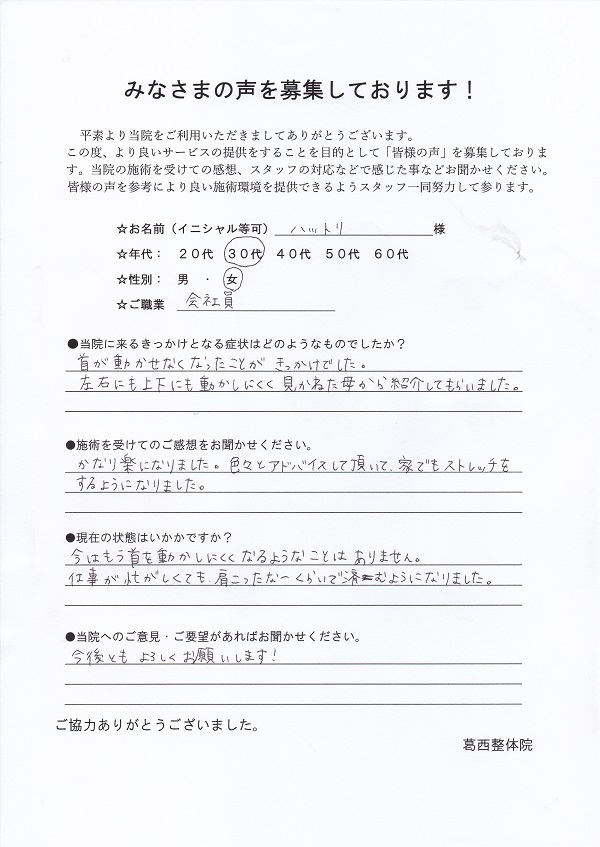 みなさまの声を募集しております！
平素より当院をご利用いただきましてありがとうございます。
この度、より良いサービスの提供をすることを目的として「皆様の声」を募集しておりま
す。当院の施術を受けての感想、スタッフの対応などで感じた事などお聞かせください。
皆様の声を参考により良い施術環境を提供できるようスタッフ一同努力して参ります。
☆お名前（イニシャル等可） ハットリ 様
☆年代： ２０代 ３０代 ４０代 ５０代 ６０代
☆性別： 男 ・ 女
☆ご職業 会社員
●当院に来るきっかけとなる症状はどのようなものでしたか？
首が動かせなくなったことが きっかけでした。
左右にも上下にも動かしにくく 見かねた母から紹介してもらいました。
●施術を受けてのご感想をお聞かせください。
かなり楽になりました。色々とアドバイスして頂いて、家でもストレッチを
するようになりました。
●現在の状態はいかかですか？
今はもう首を動かしにくくなるようなことは ありません。
仕事が忙がしくても、肩こったな～くらいで済むようになりました。
●当院へのご意見・ご要望があればお聞かせください。
今後とも よろしくお願いします！
ご協力ありがとうございました。
葛西整体院